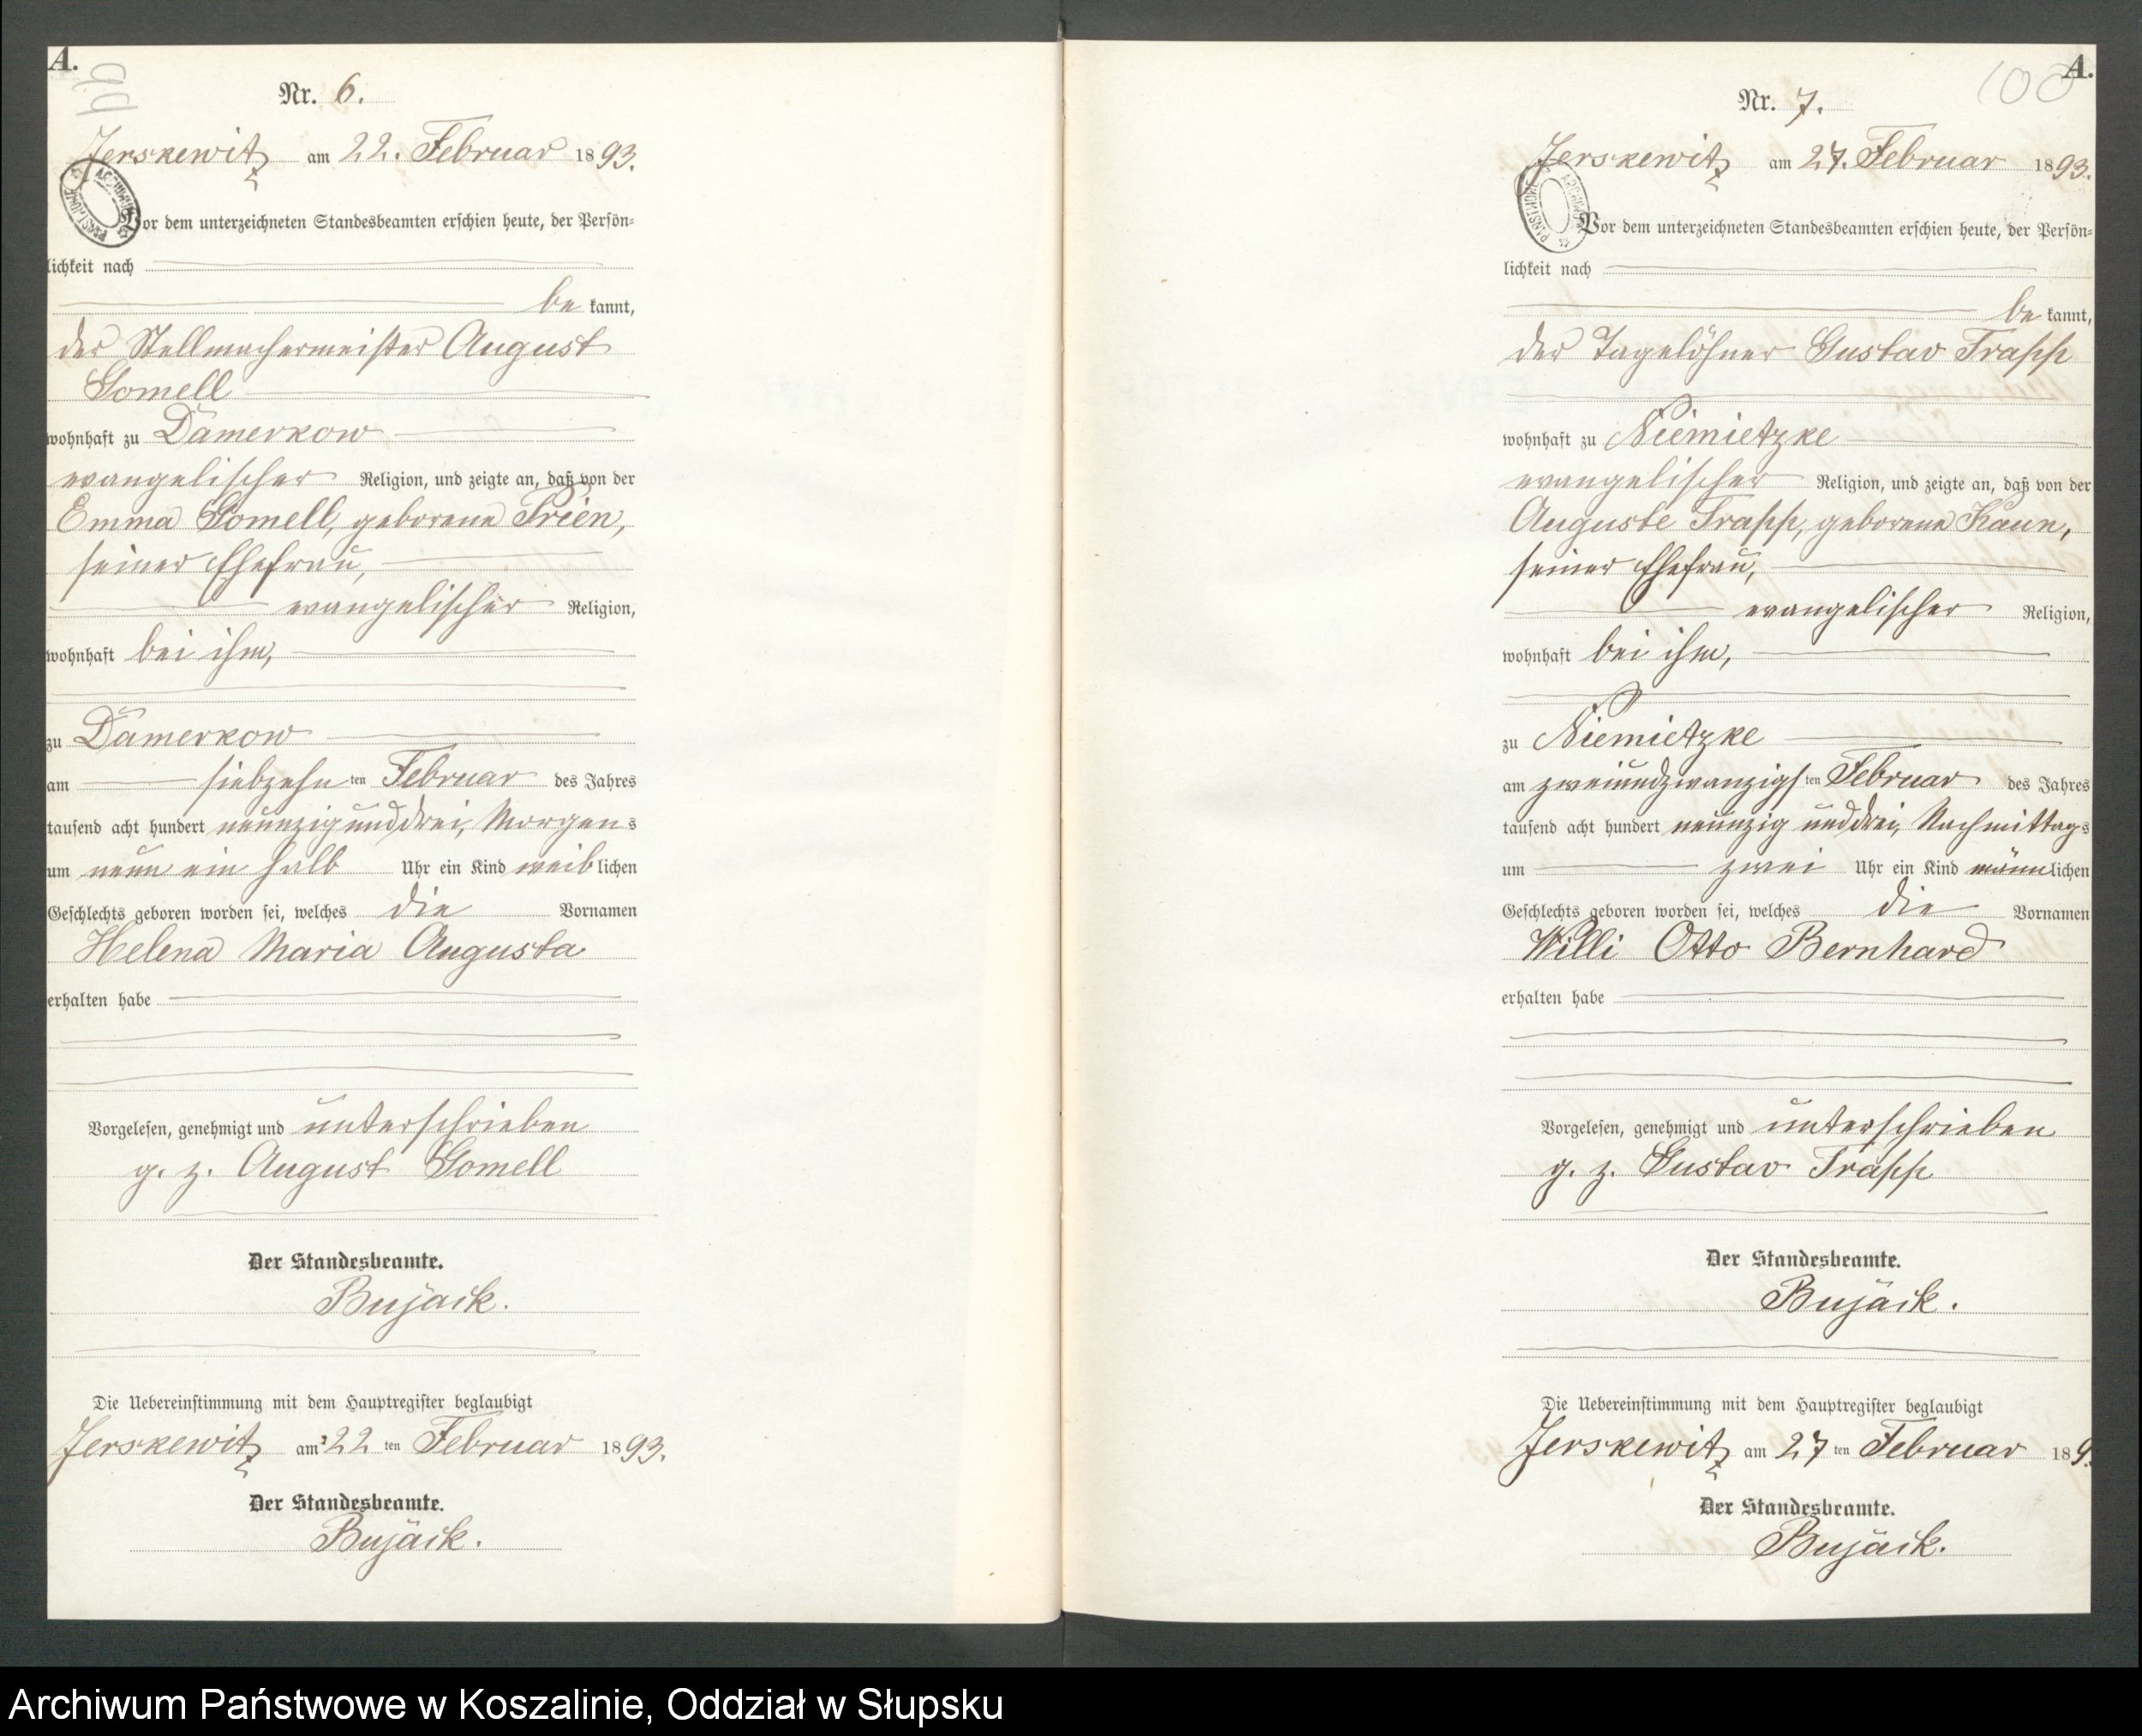 A.
99
Nr. 6.
Jerskewitz am 22. Februar 1893.
Vor dem unterzeichneten Standesbeamten erschien heute, der Persön-
lichkeit nach
be kannt,
der Stellmachermeister August
Gomell
wohnhaft zu Damerkow
evangelischer Religion, und zeigte an, daß von der
Emma Gomell, geborene Prien,
seiner Ehefrau,
evangelischer Religion,
wohnhaft bei ihm,
zu Damerkow
am siebzehn ten Februar des Jahres
tausend acht hundert neunzig und drei, Morgens
um neun ein halb Uhr ein Kind weiblichen
Geschlechts geboren worden sei, welches die Vornamen
Helena Maria Augusta
erhalten habe
Vorgelesen, genehmigt und unterschrieben
g. z. August Gomell
Der Standesbeamte.
Bujack.
Die Uebereinstimmung mit dem Hauptregister beglaubigt
Jerskewitz am 22 ten Februar 1893.
Der Standesbeamte.
Bujack.
A.
100
Nr. 7.
Jerskewitz am 27. Februar 1893.
Vor dem unterzeichneten Standesbeamten erschien heute, der Persön-
lichkeit nach
be kannt,
der Tagelöhner Gustav Trapp
wohnhaft zu Niemietzke
evangelischer Religion, und zeigte an, daß von der
Auguste Trapp, geborene Kaun,
seiner Ehefrau,
evangelischer Religion,
wohnhaft bei ihm,
zu Niemietzke
am zweiundzwanzigsten Februar des Jahres
tausend acht hundert neunzig und drei, Nachmittags
um zwei Uhr ein Kind männlichen
Geschlechts geboren worden sei, welches die Vornamen
Willi Otto Bernhard
erhalten habe
Vorgelesen, genehmigt und unterschrieben
g. z. Gustav Trapp
Der Standesbeamte.
Bujack.
Die Uebereinstimmung mit dem Hauptregister beglaubigt
Jerskewitz am 27 ten Februar 189
Der Standesbeamte.
Bujack.
Archiwum Państwowe w Koszalinie, Oddział w Słupsku